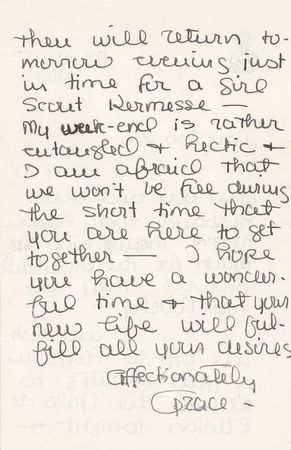 then will return to-
morrow evening just
in time for a Girl
Scout Kermesse —
My week-end is rather
entangled & hectic &
I am afraid that
we won't be free during
the short time that
you are here to get
together — I hope
you have a wonder-
ful time & that your
new life will ful-
fill all your desires
affectionately
Grace -